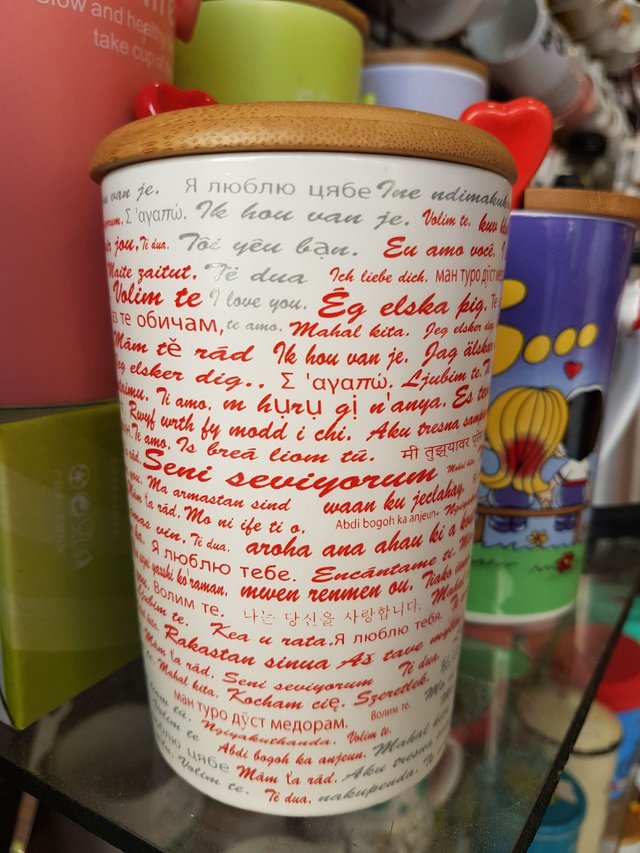 Glow and
take cup of
van je. Я люблю цябе Ine ndimakuk
Σ 'αγαπώ. Ik hou van je. Volim te.
jou, Të dua. Tôi yêu bạn. Eu amo você.
Maite zaitut. Të dua Ich liebe dich. ман туро дӯст
Volim te I love you. Ég elska þig. Te
те обичам, te amo. Mahal kita. Jeg elsker dig
Mám tě rád Ik hou van je. Jag älskar
elsker dig.. Σ 'αγαπώ. Ljubim te.
Ti amo. m hụrụ gị n'anya. Es
Rwyf wrth fy modd i chi. Aku tresna
Te amo. Is breá liom tú. मी तुझ्यावर
Seni seviyorum Mahal kita.
Ma armastan sind waan ku jeclahay.
rád. Mo ni ife ti o. Abdi bogoh ka anjeun.
vin, Të dua. aroha ana ahau ki a
Я люблю тебе. Encántame
yaxshi ko'raman. mwen renmen ou. Tiako
Волим те. 나는 당신을 사랑합니다.
Ljubim te. Kea u rata. Я люблю тебя.
Rakastan sinua Aš tave myliu
Mám ťa rád. Seni seviyorum Të dua.
Mahal kita. Kocham cię. Szeretlek.
ман туро дӯст медорам. Волим те.
Ngiyakuthanda. Volim te.
Abdi bogoh ka anjeun. Mahal
люблю цябе Mám ťa rád. Aku tresna
Volim te. Të dua, nakupenda.